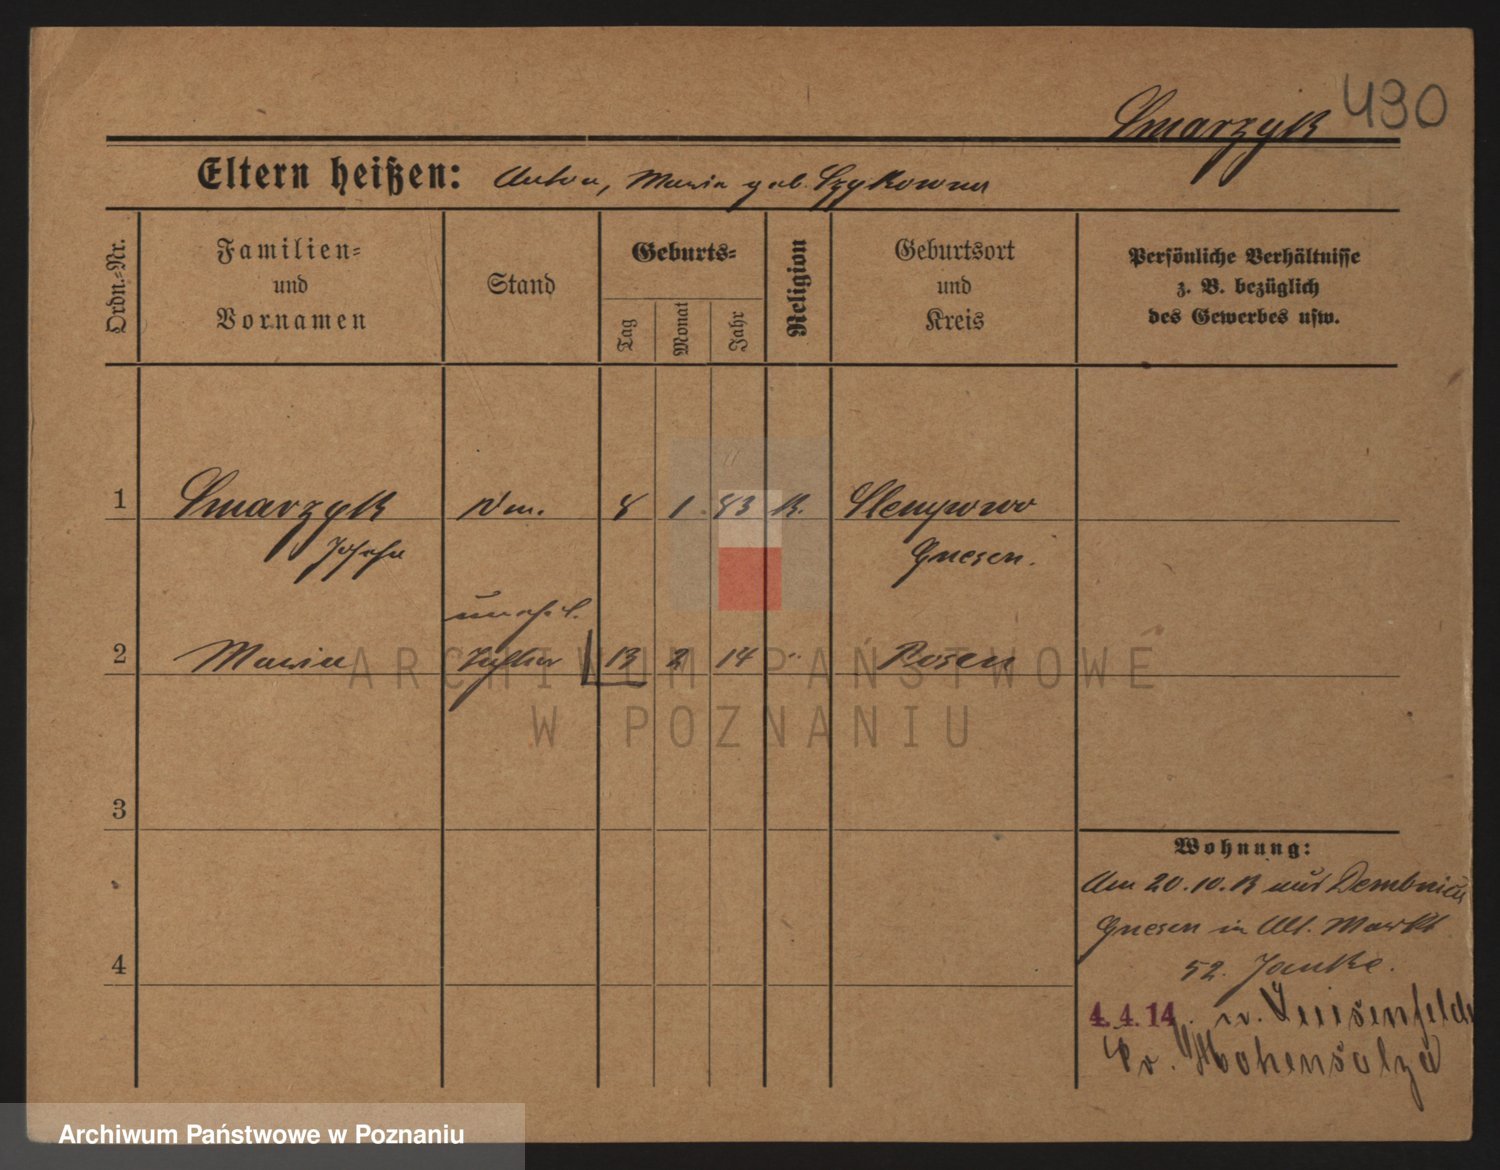 490
Smarzyk
Eltern heißen: Anton, Maria geb. Szykowna
Ordn.-Nr.
Familien-
und
Vornamen
Stand
Geburts-
Tag
Monat
Jahr
Religion
Geburtsort
und
Kreis
Persönliche Verhältnisse
z. B. bezüglich
des Gewerbes usw.
1 Smarzyk 8 1. 83 K. Slempowo
Josefa Gnesen.
unehel.
2 Maria Tochter 13 2 14 " Posen
3
4
Wohnung:
Am 20.10.13 aus Dembnica
Gnesen in Alt. Markt
52. Janke.
4. 4. 14. n. Luisenfelde
Kr. Hohensalza
ARCHIWUM PAŃSTWOWE
W POZNANIU
Archiwum Państwowe w Poznaniu